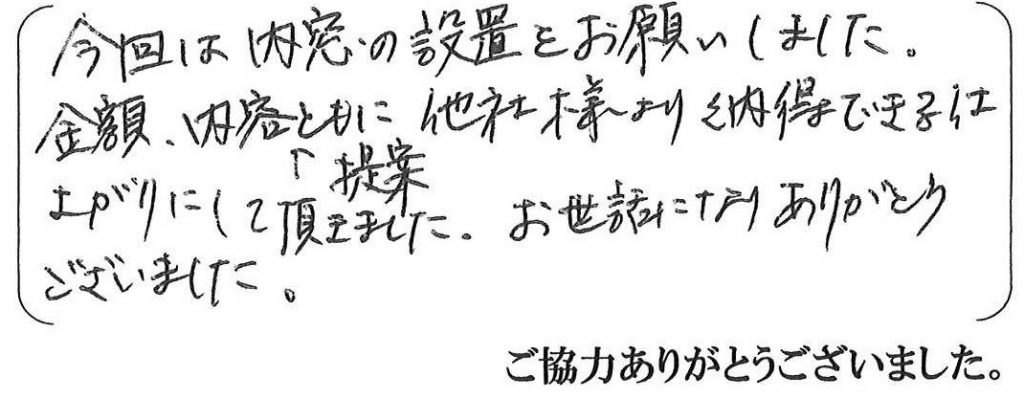 今回は内窓の設置をお願いしました。
金額、内容ともに他社様より納得できる仕
↑提案
上がりにして頂きました。お世話になりありがとう
ございました。
ご協力ありがとうございました。